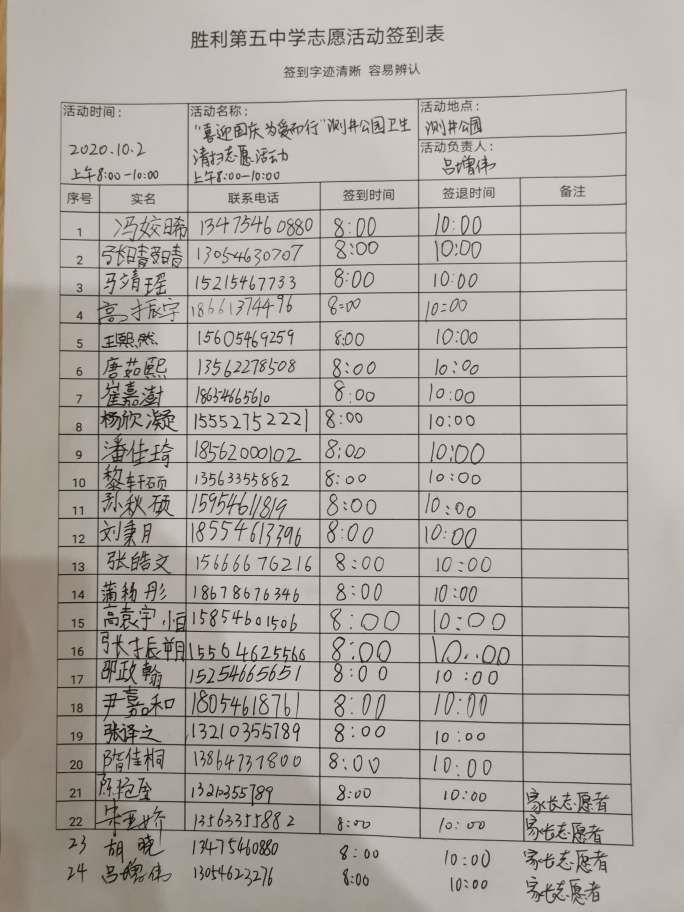 胜利第五中学志愿活动签到表
签到字迹清晰 容易辨认
活动时间： 活动名称： 活动地点：
2020.10.2 "喜迎国庆 为爱而行"测井公园卫生 测井公园
上午8:00-10:00 清扫志愿活动 活动负责人：
上午8:00-10:00 吕增伟
序号 实名 联系电话 签到时间 签退时间 备注
1 冯姣晞 13475460880 8:00 10:00
2 13054630707 8:00 10:00
3 马靖瑶 15215467733 8:00 10:00
4 高振宇 18661374496 8:00 10:00
5 王熙然 15605469259 8:00 10:00
6 唐茹熙 13562278508 8:00 10:00
7 崔嘉澍 18654665610 8:00 10:00
8 杨欣凝 15552752221 8:00 10:00
9 潘佳琦 18562000102 8:00 10:00
10 黎轩硕 13563355882 8:00 10:00
11 孙秋硕 15954611819 8:00 10:00
12 刘秉月 18554613396 8:00 10:00
13 张皓文 15666676216 8:00 10:00
14 蒲杨彤 18678676346 8:00 10:00
15 高袁宇恒 15854601506 8:00 10:00
16 张振朔 15564625566 8:00 10:00
17 邵政翰 15254665651 8:00 10:00
18 尹嘉和 18054618761 8:00 10:00
19 张译之 13210355789 8:00 10:00
20 隋佳桐 13864731800 8:00 10:00
21 1321355789 8:00 10:00 家长志愿者
22 宋亚娇 13563355882 8:00 10:00 家长志愿者
23 胡晓 13475460880 8:00 10:00 家长志愿者
24 吕增伟 13054623276 8:00 10:00 家长志愿者